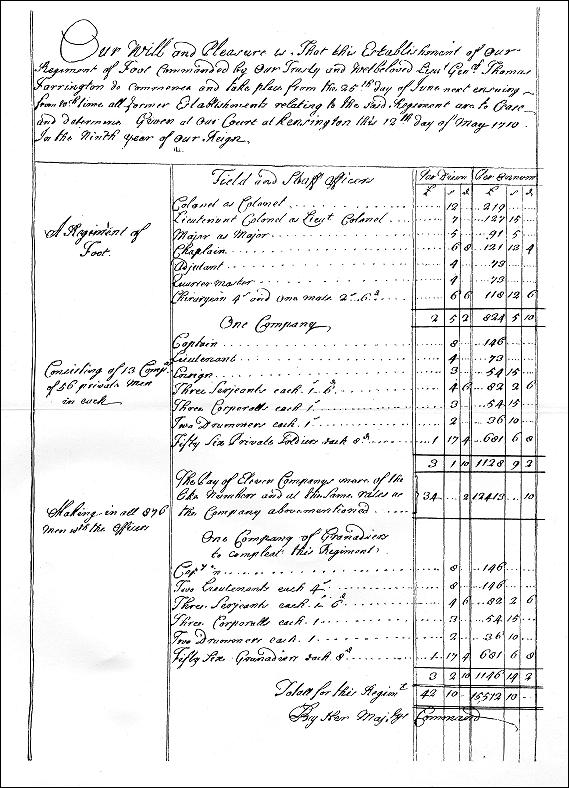 Our Will and Pleasure is, That this Establishment of Our
Regiment of Foot Commanded by Our Trusty and Welbeloved Lieut Genll Thomas
Farrington do commence and take place from the 25th day of June next ensuing
from wch time all former Establishments relating to the said Regiment are to Cease
and determine Given at Our Court at Kensington this 12th day of May 1710.
In the Ninth year of Our Reign.
Field and Staff Officers Per Diem Per Annum
£ s d £ s d
Colonel as Colonel 12 219
Lieutenant Colonel as Lieut Colonel 7 127 15
Major as Major 5 91 5
A Regiment of
Foot.
Chaplain 6 8 121 13 4
Adjutant 4 73
Quarter-master 4 73
Chirurgion 4s and one mate 2s 6d 6 6 118 12 6
2 5 2 824 5 10
One Company
Captain 8 146
Lieutenant 4 73
Consisting of 13 Compas
of 56 private men
in each
Ensign 3 54 15
Three Serjeants each 1s 6d 4 6 82 2 6
Three Corporalls each 1s 3 54 15
Two Drummers each 1s 2 36 10
Fifty Six Private Soldiers each 8d 1 17 4 681 6 8
3 1 10 1128 9 2
The Pay of Eleven Companys more of the
like Numbers and at the same rates as
the Company abovementioned 34 2 12413 10
Making in all 876
men wth the Officers
One Company of Granadiers
to compleat this Regiment
Capt n 8 146
Two Lieutenants each 4s 8 146
Three Serjeants each 1s 6d 4 6 82 2 6
Three Corporalls each 1 3 54 15
Two Drummers each 1 2 36 10
Fifty Six Granadiers each 8d 1 17 4 681 6 8
3 2 10 1146 14 2
Total for this Regimt 42 10 15512 10
By Her Majtys Command